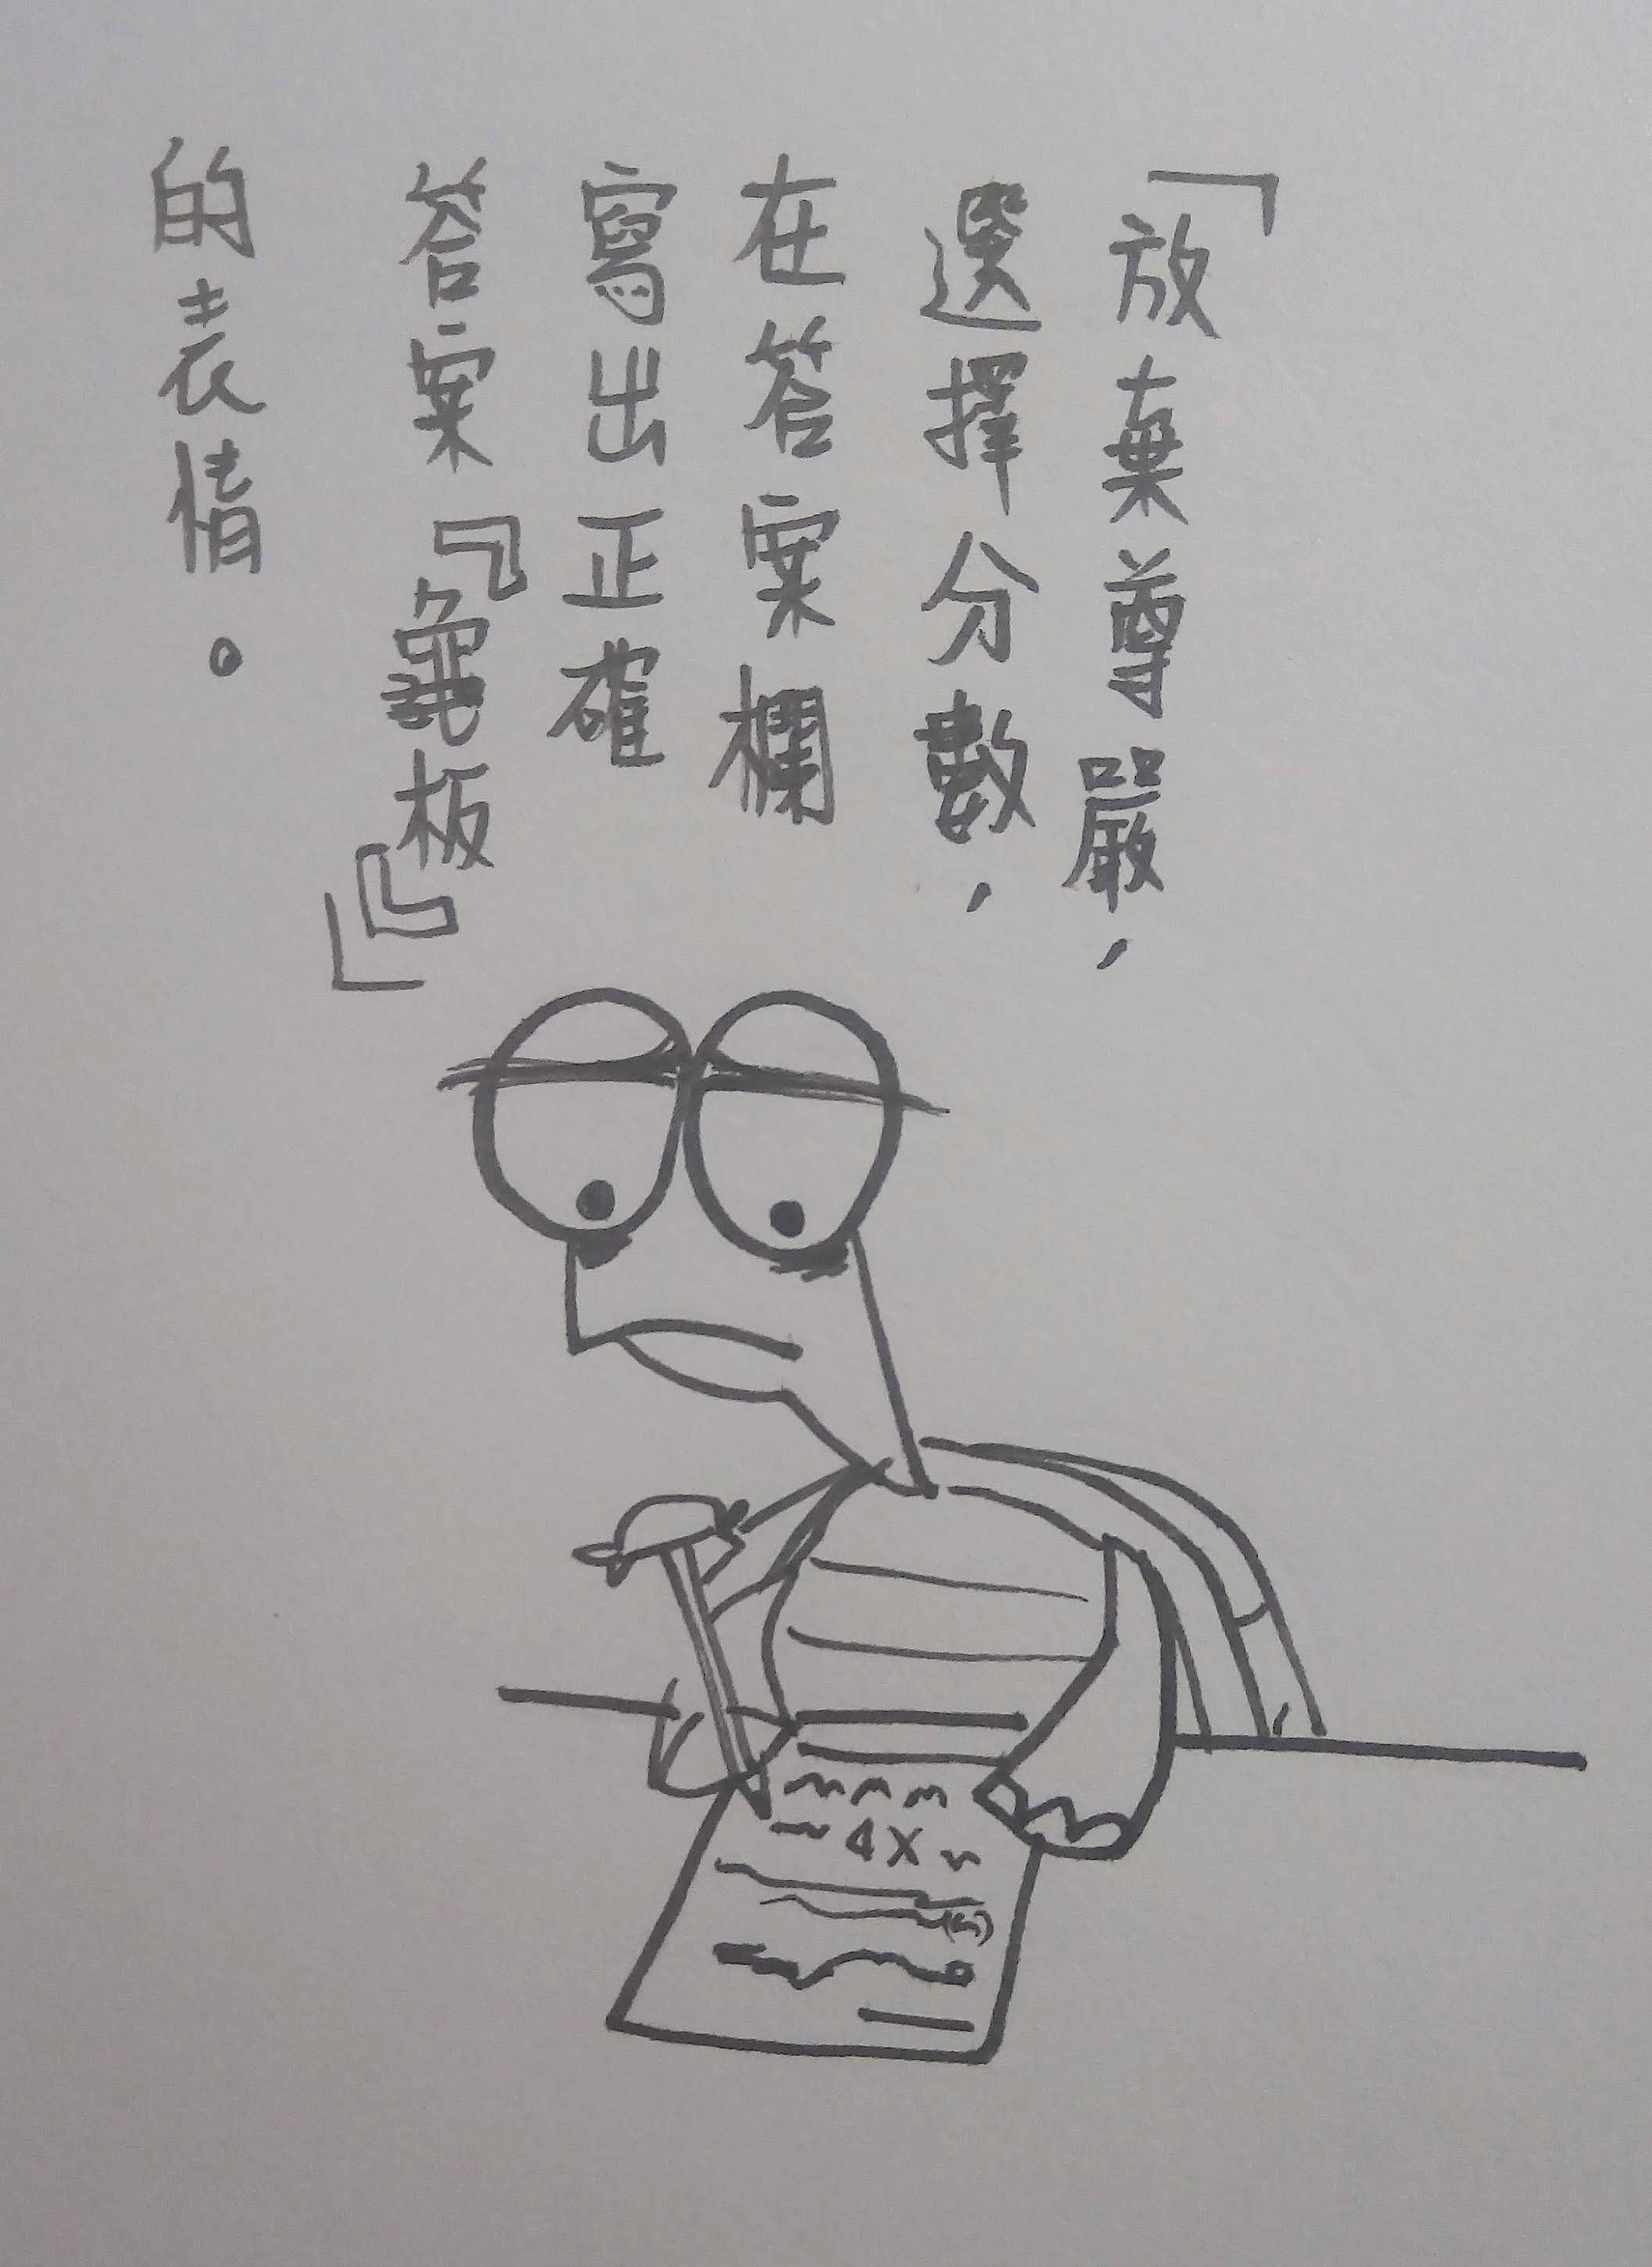 「放棄尊嚴，
選擇分數，
在答案欄
寫出正確
答案『龜板』」
的表情。
4X